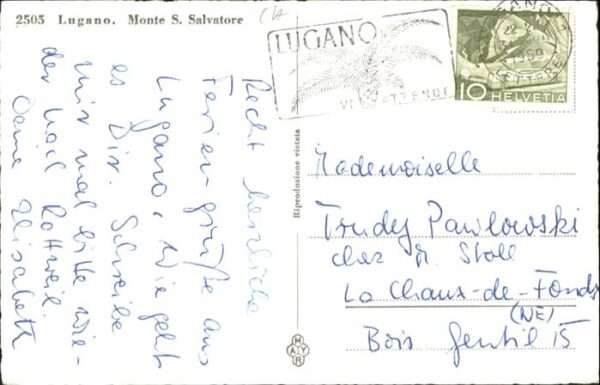 2505 Lugano. Monte S. Salvatore
LUGANO
VI ATTENDE
10 HELVETIA
Riproduzione vietata
Recht herzliche
Feriengrüße aus
Lugano. Wie geht
es Dir. Schreibe
mir mal bitte wie-
der nach Rottweil.
Deine Elisabeth
Mademoiselle
Trudy Pawlowski
chez M. Stoll
La Chaux-de-Fonds
(NE)
Bois Gentil 15